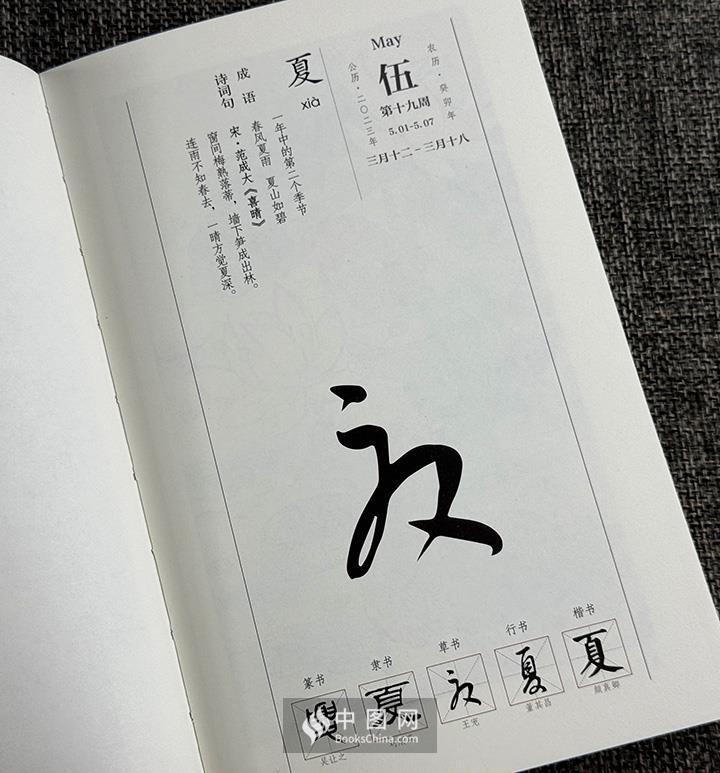 May
农历·癸卯年
伍
公历·二〇二三年
第十九周
5.01-5.07
三月十二-三月十八
夏
xià
一年中的第二个季节
成语
春风夏雨 夏山如碧
诗词句
宋·范成大《喜晴》
窗间梅熟落蒂，墙下笋成出林。
连雨不知春去，一晴方觉夏深。
夏
楷书
夏
颜真卿
行书
夏
董其昌
草书
夏
王宠
隶书
夏
篆书
夏
吴让之
中图网
BooksChina.com